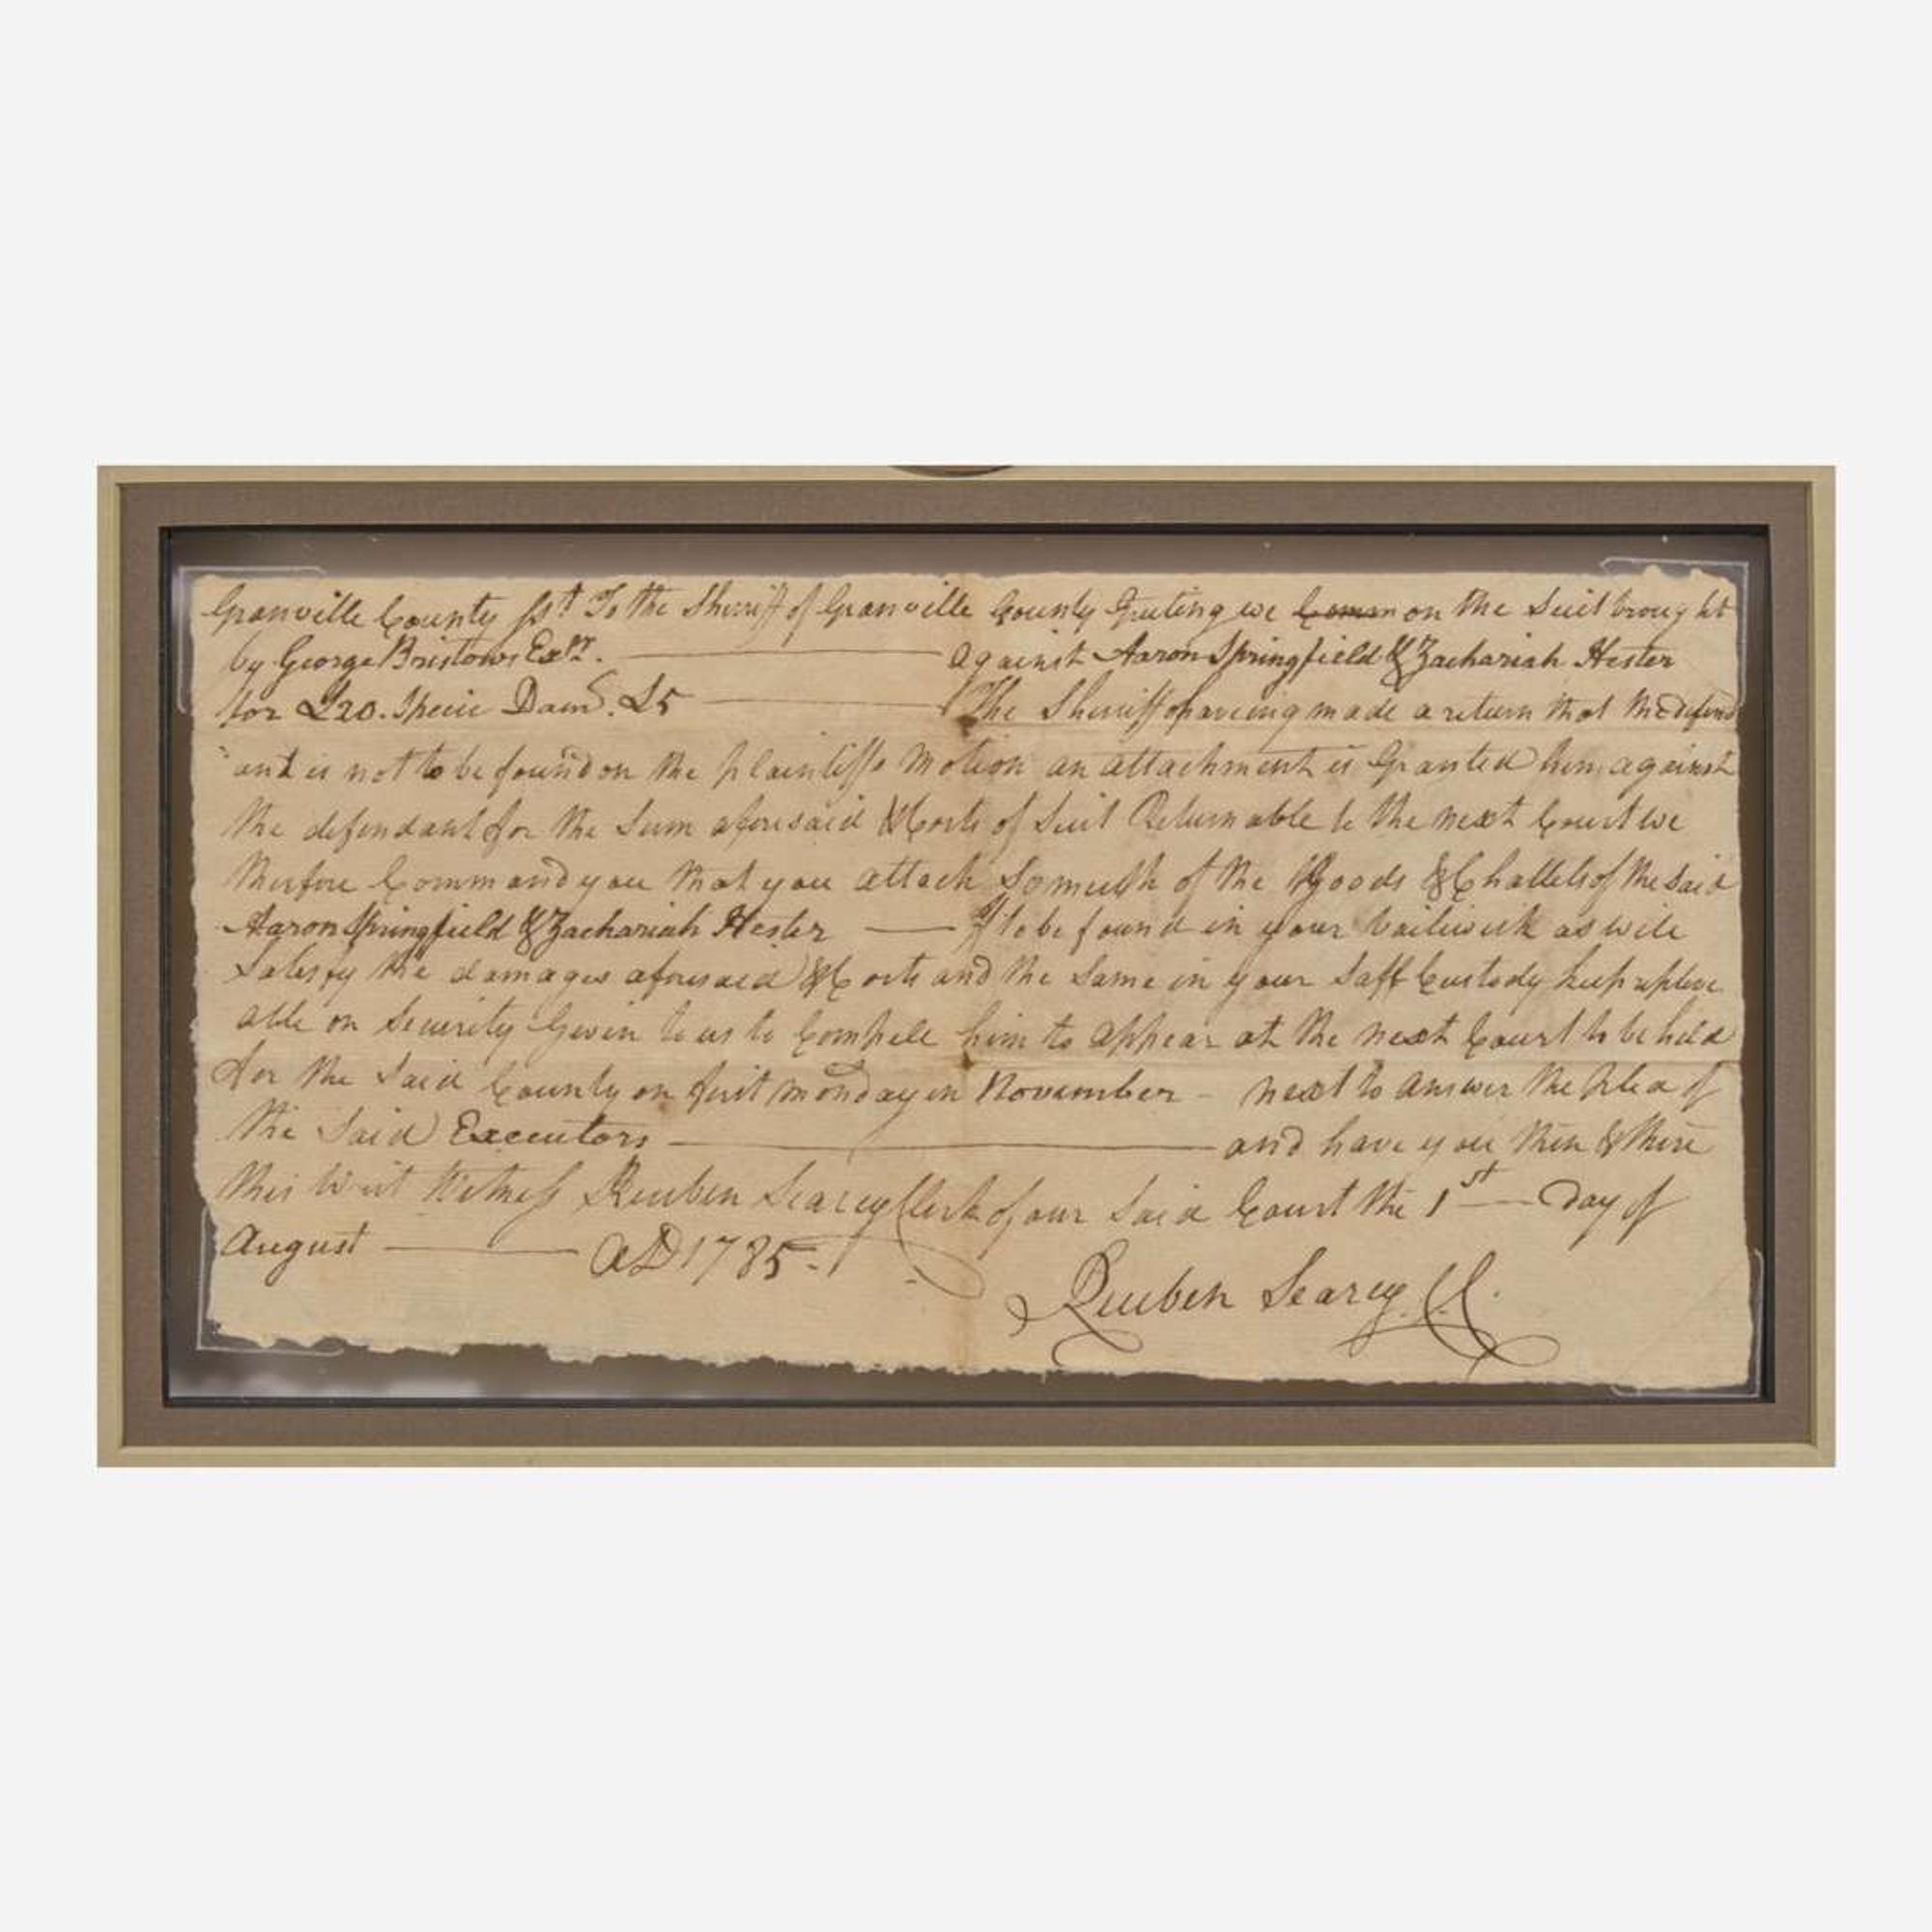 Granville County Sst. To the Sherriff of Granville County Greeting we Comm on the Suit brought
by George Bristows Exrs. against Aaron Springfield & Zachariah Hester
for £20. Specie Dams. £5 The Sherriff having made a return that the defend
ant is not to be found on the plaintiffs Motion an attachment is Granted him against
the defendant for the Sum aforesaid & Costs of Suit Returnable to the next Court we
therfore Command you that you attach So much of the Goods & Chattels of the Said
Aaron Springfield & Zachariah Hester If to be found in your bailiwick as will
Satisfy the damages aforesaid & Costs and the Same in your Saff Custody keep repleve
able on Security Given to us to Compell him to appear at the next Court to be held
for the Said County on first monday in November next to answer the plea of
the Said Executors and have you then & there
this Writ Witness Reuben Searcy Clerk of our Said Court the 1st Day of
August AD 1785.
Reuben Searcy CC.